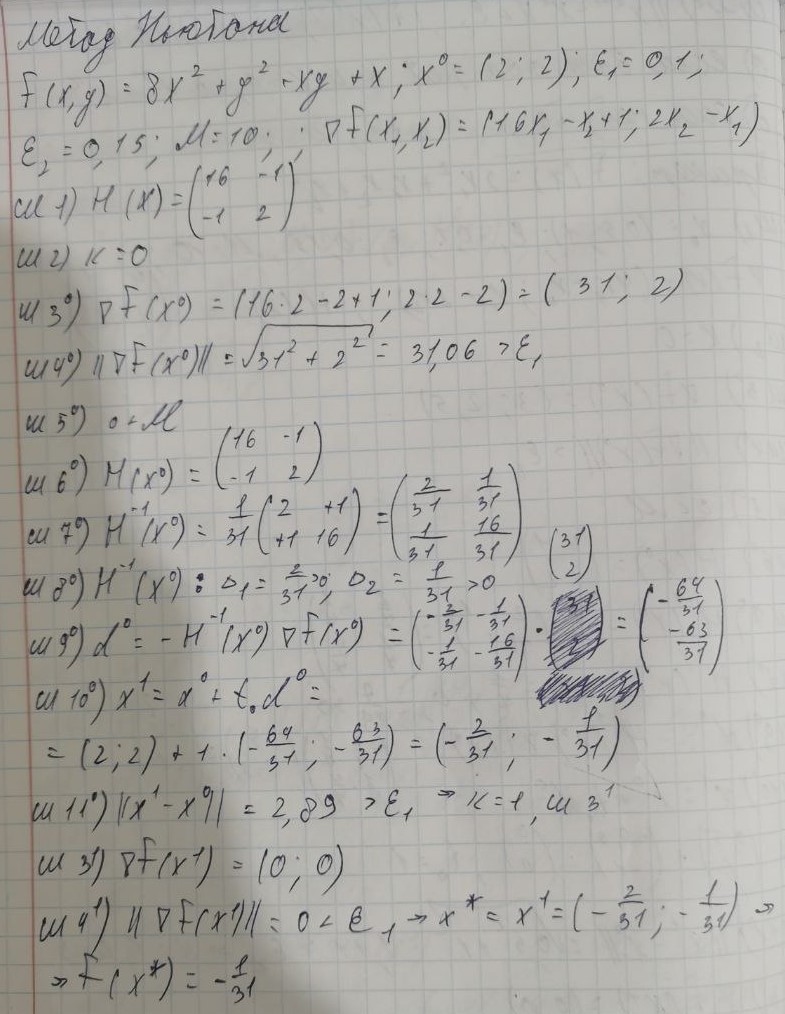 Метод Ньютона
F(x,y) = 8x² + y² - xy + x; x⁰ = (2; 2); ε₁ = 0,1;
ε₂ = 0,15; M = 10; ; ∇F(x₁,x₂) = (16x₁ - x₂+1; 2x₂ - x₁)
ш 1) H(x) = (16 -1; -1 2)
ш 2) k = 0
ш 3⁰) ∇F(x⁰) = (16·2 - 2+1; 2·2 - 2) = (31; 2)
ш 4⁰) ||∇F(x⁰)|| = √(31² + 2²) = 31,06 > ε₁
ш 5⁰) 0 < M
ш 6⁰) H(x⁰) = (16 -1; -1 2)
ш 7⁰) H⁻¹(x⁰) = 1/31 (2 +1; +1 16) = (2/31 1/31; 1/31 16/31)
ш 8⁰) H⁻¹(x⁰) : Δ₁ = 2/31 >0; Δ₂ = 1/31 >0
ш 9⁰) d⁰ = - H⁻¹(x⁰) ∇F(x⁰) = (-2/31 -1/31; -1/31 -16/31) · (31; 2) = (-64/31; -63/31)
ш 10⁰) x¹ = x⁰ + t₀ d⁰ =
= (2; 2) + 1 · (-64/31; -63/31) = (-2/31; -1/31)
ш 11⁰) ||x¹ - x⁰|| = 2,89 > ε₁ ⇒ k = 1, ш 3¹
ш 3¹) ∇F(x¹) = (0; 0)
ш 4¹) ||∇F(x¹)|| = 0 < ε₁ → x* = x¹ = (-2/31; -1/31) ⇒
⇒ F(x*) = -1/31